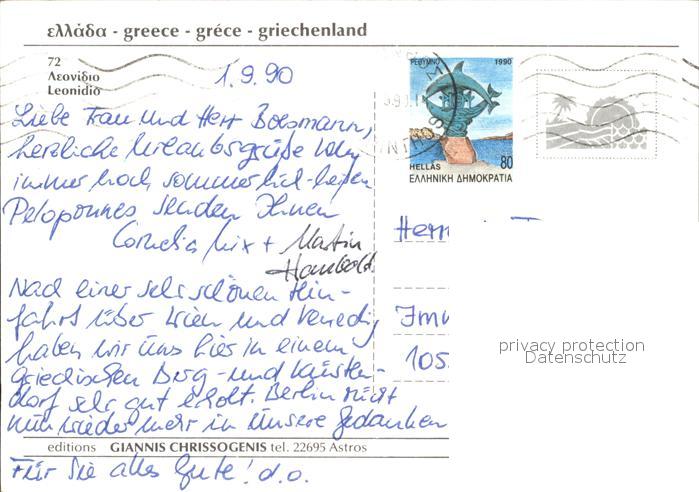 ελλάδα - greece - gréce - griechenland
72
Λεονίδιο
Leonidio
1.9.90
ΡΕΘΥΜΝΟ 1990
HELLAS 80
ΕΛΛΗΝΙΚΗ ΔΗΜΟΚΡΑΤΙΑ
Liebe Frau und Herr Bossmann,
herzliche Urlaubsgrüße vom
immer noch sommerlich-heißen
Peloponnes senden Ihnen
Cornelia Nix + Martin
Humbold
Nach einer sehr schönen Hin-
fahrt über Wien und Venedig
haben wir uns hier in einem
griechischen Berg- und Küsten-
dorf sehr gut erholt. Berlin rückt
nun wieder mehr in unsere Gedanken
Für Sie alles Gute! d.o.
Herrn
105
privacy protection
Datenschutz
editions GIANNIS CHRISSOGENIS tel. 22695 Astros